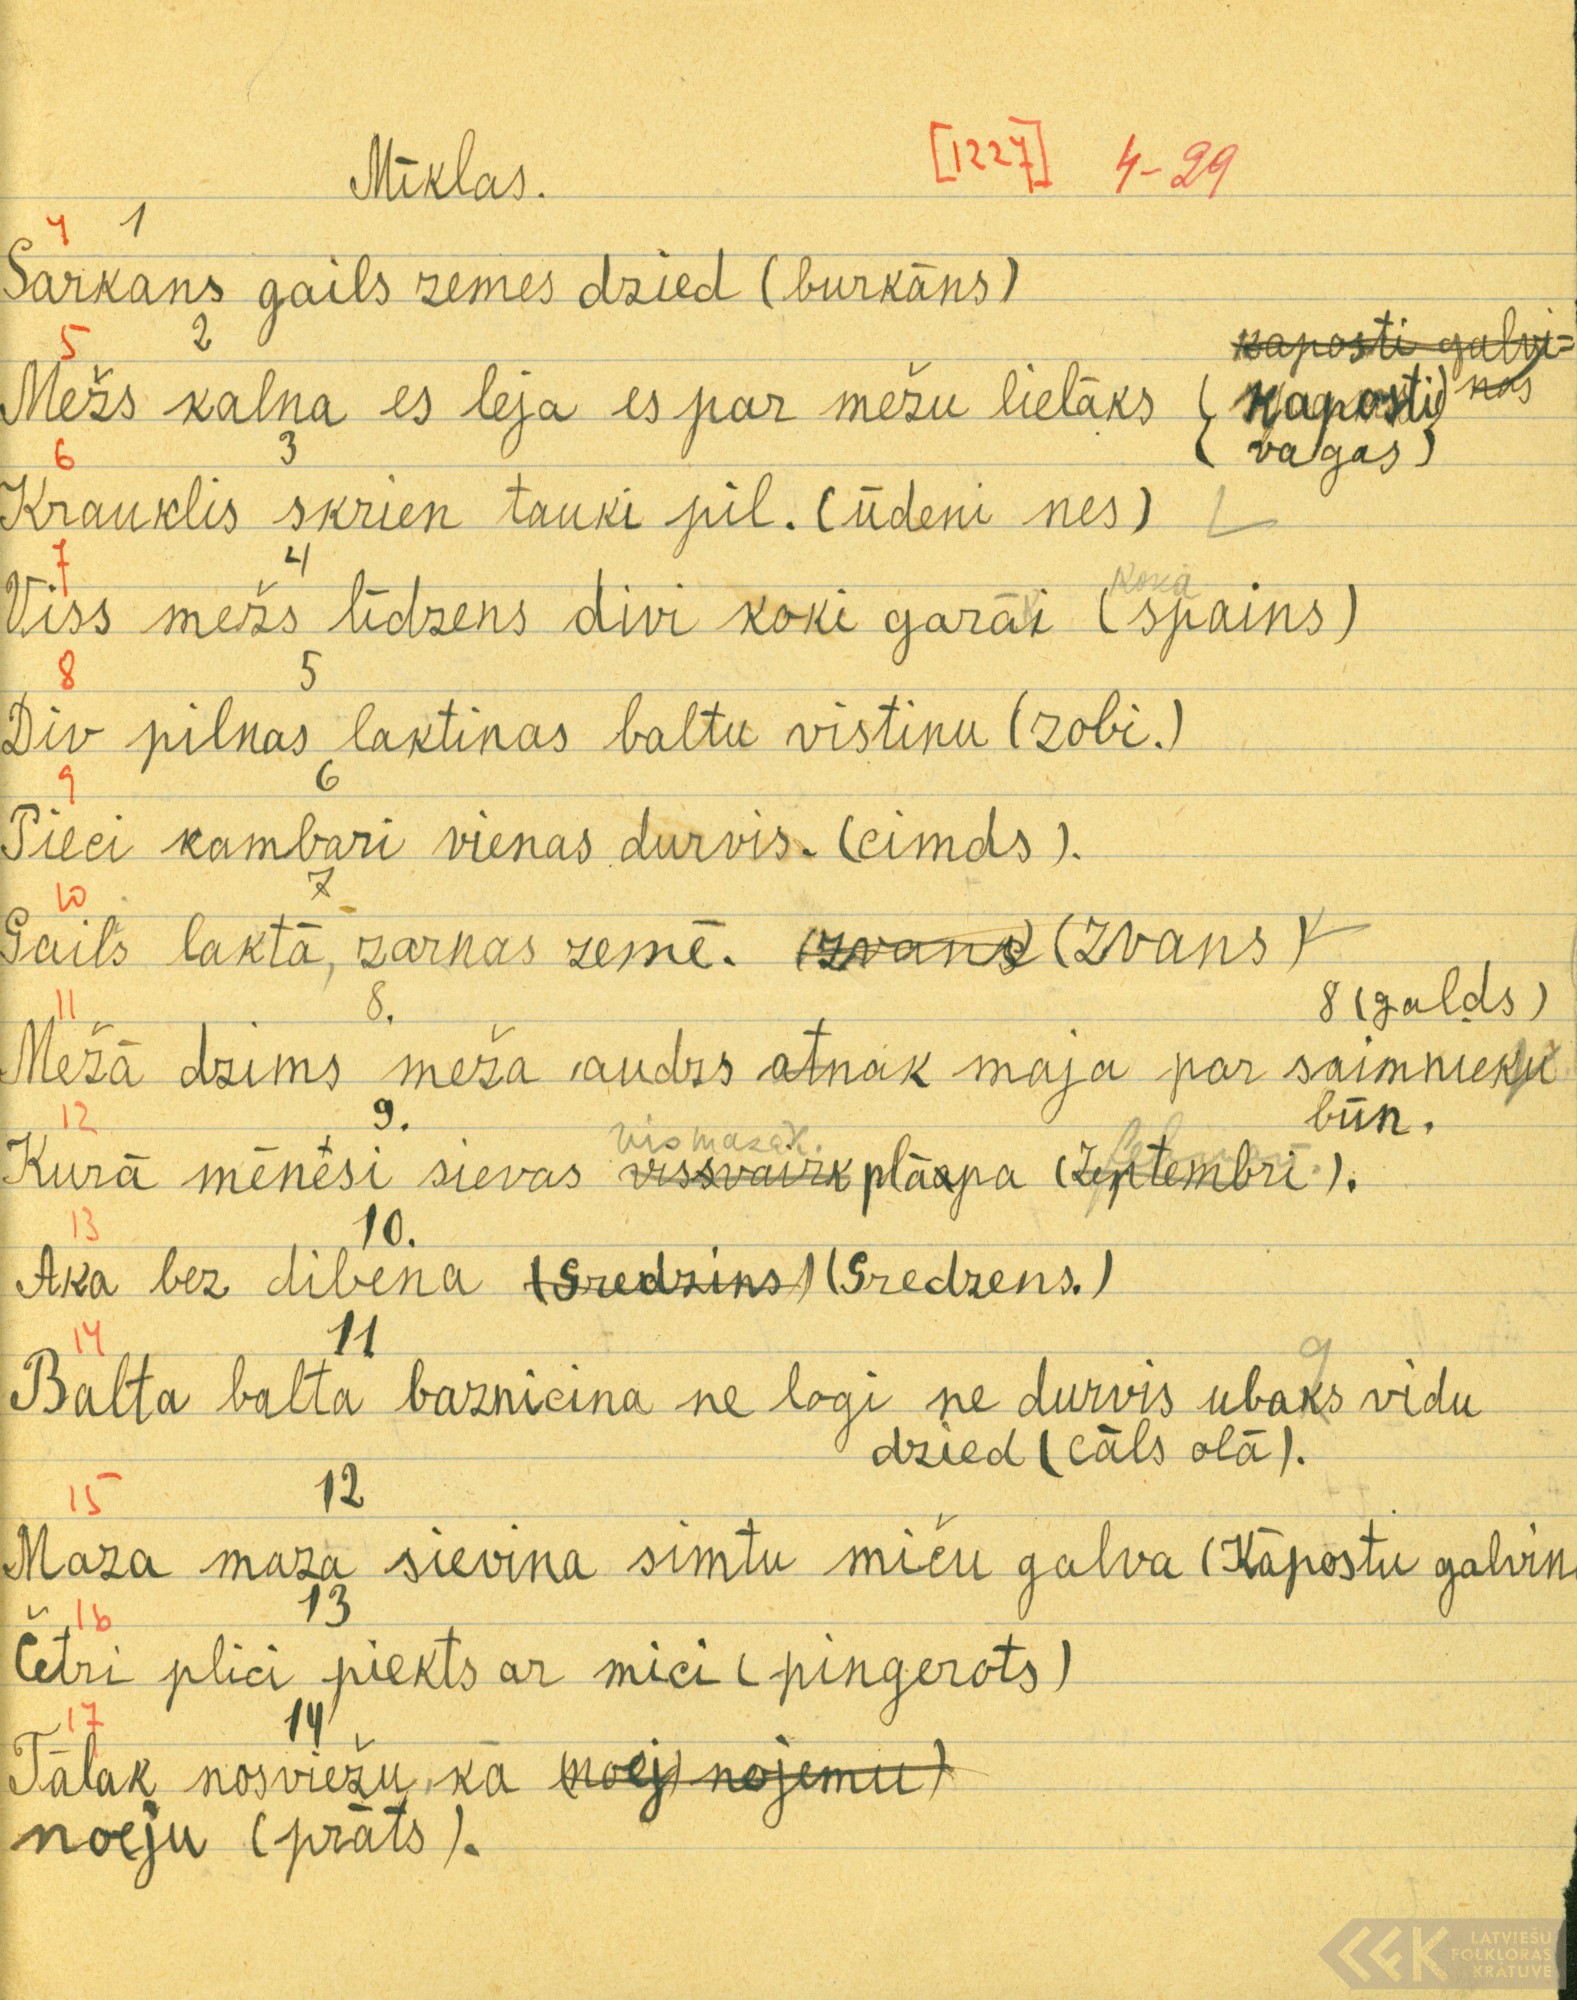 Mīklas. [1227] 4-29
4 1
Sarkans gails zemes dzied (burkāns)
5 2 kaposti galvi=
Mežs kalna es leja es par mežu lielāks (kaposti) nas
6 3 (vagas)
Krauklis skrien tauki pil. (ūdeni nes)
7 4 koka
Viss mežs līdzens divi koki garāki (spains)
8 5
Div pilnas laktinas baltu vistinu (zobi.)
9 6
Pieci kambari vienas durvis. (cimds).
10 7
Gails laktā, zarnas zemē. (zvans) (zvans)
11 8. 8 (galds)
Mežā dzims meža audzs atnak maja par saimnieku
12 9. būn.
vismazāk.
Kurā mēnēsi sievas vissvairk plāapa (Septembrī).
13 10.
Aka bez dibena (Gredzins) (Gredzens.)
14 11
Balta balta baznicina ne logi ne durvis ubaks vidu
dzied (cāls olā).
15 12
Maza maza sievina simtu miču galva (Kāpostu galvin
16 13
Četri plici piekts ar mici (pingerots)
17 14
Tālak nosviežu, kā (noej) nojemu)
noeju (prāts).
LATVIEŠU
FOLKLORAS
KRĀTUVE